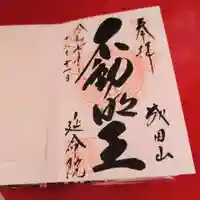 奉拝
成田山
不動明王
延命院